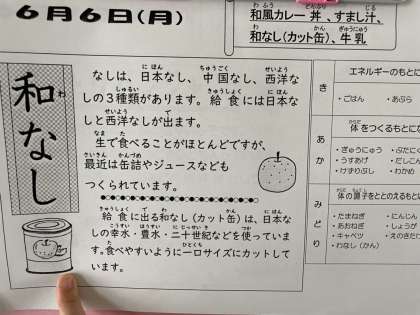 6月6日(月)
和風カレー丼、すまし汁、
和なし(カット缶)、牛乳
和なし
なしは、日本なし、中国なし、西洋な
しの3種類があります。給食には日本な
しと西洋なしが出ます。
生で食べることがほとんどですが、
最近は缶詰やジュースなども
つくられています。
給食に出る和なし(カット缶)は、日本な
しの幸水・豊水・二十世紀などを使っていま
す。食べやすいように一口サイズにカットして
います。
き
エネルギーのもとに
・ごはん
・あぶら
あか
体をつくるもとにな
・ぎゅうにゅう
・ぶたにく
・うすあげ
・だしこん
・けずりぶし
・わかめ
みどり
体の調子をととのえるもとに
・たまねぎ
・にんじん
・あおねぎ
・しょうが
・キャベツ
・えのきたけ
・わなし(かん)